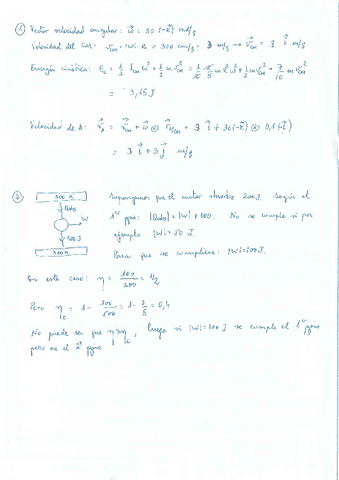 ① Vector velocidad angular: ω⃗ = 30 (-k⃗) rad/s
Velocidad del CM: v_CM = |ω|·R = 300 cm/s = 3 m/s → v⃗_CM = 3 i⃗ m/s
Energía cinética: E_c = 1/2 I_CM ω² + 1/2 m v²_CM = 1/2 2/5 m R² ω² + 1/2 m v²_CM = 7/10 m v²_CM
= 3,15 J
Velocidad de A: v⃗_A = v⃗_CM + ω⃗ ⊗ r⃗_A/CM = 3 i⃗ + 30(-k⃗) ⊗ 0,1(-i⃗)
= 3 i⃗ + 3 j⃗ m/s
② Supongamos que el motor absorbe 200 J. Según el
1er ppio: |Qabs| = |W| + 100. No se cumple si por
ejemplo |W| = 50 J.
Para que se cumpliera: |W| = 100 J.
500 K
Qabs
W
100 J
300 K
En este caso: η = 100/200 = 1/2
Pero η_c = 1 - 300/500 = 1 - 3/5 = 0,4
No puede ser que η > η_c, luego si |W| = 100 J se cumple el 1er ppio
pero no el 2º ppio